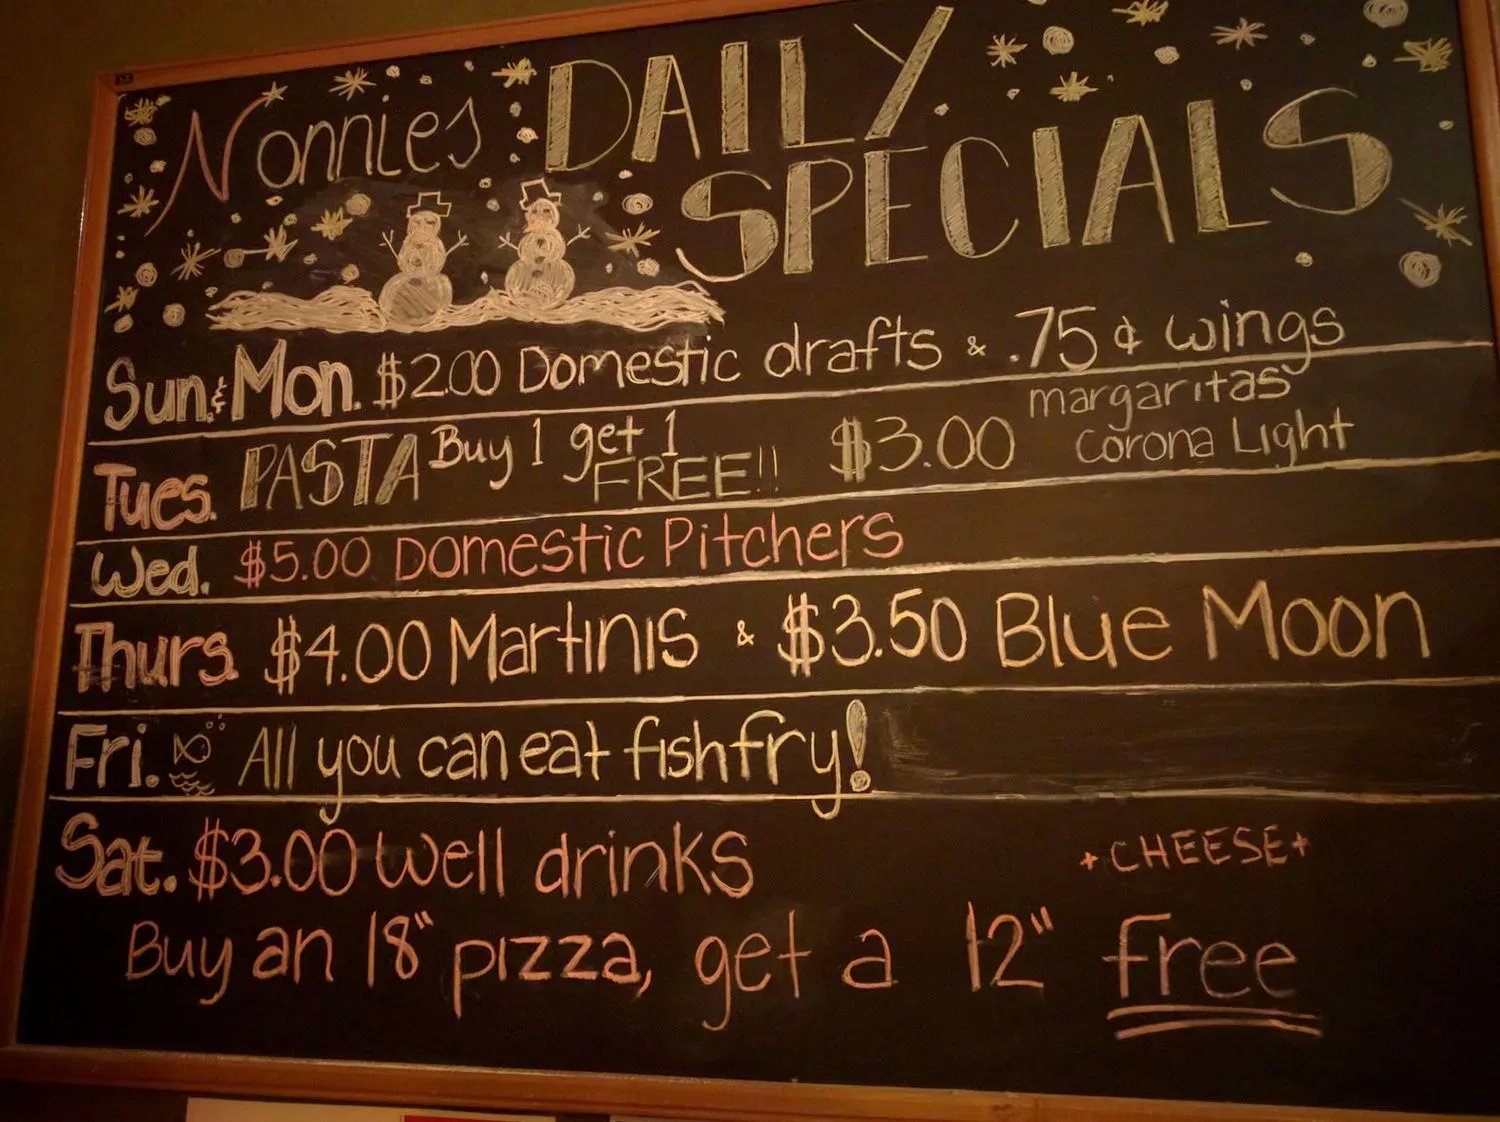 Nonnies DAILY
SPECIALS
Sun. & Mon. $2.00 Domestic drafts & .75¢ wings
Tues. PASTA Buy 1 get 1 FREE!! $3.00 margaritas Corona Light
Wed. $5.00 Domestic Pitchers
Thurs. $4.00 Martinis & $3.50 Blue Moon
Fri. All you can eat fish fry!
Sat. $3.00 well drinks
+CHEESE+
Buy an 18" pizza, get a 12" free